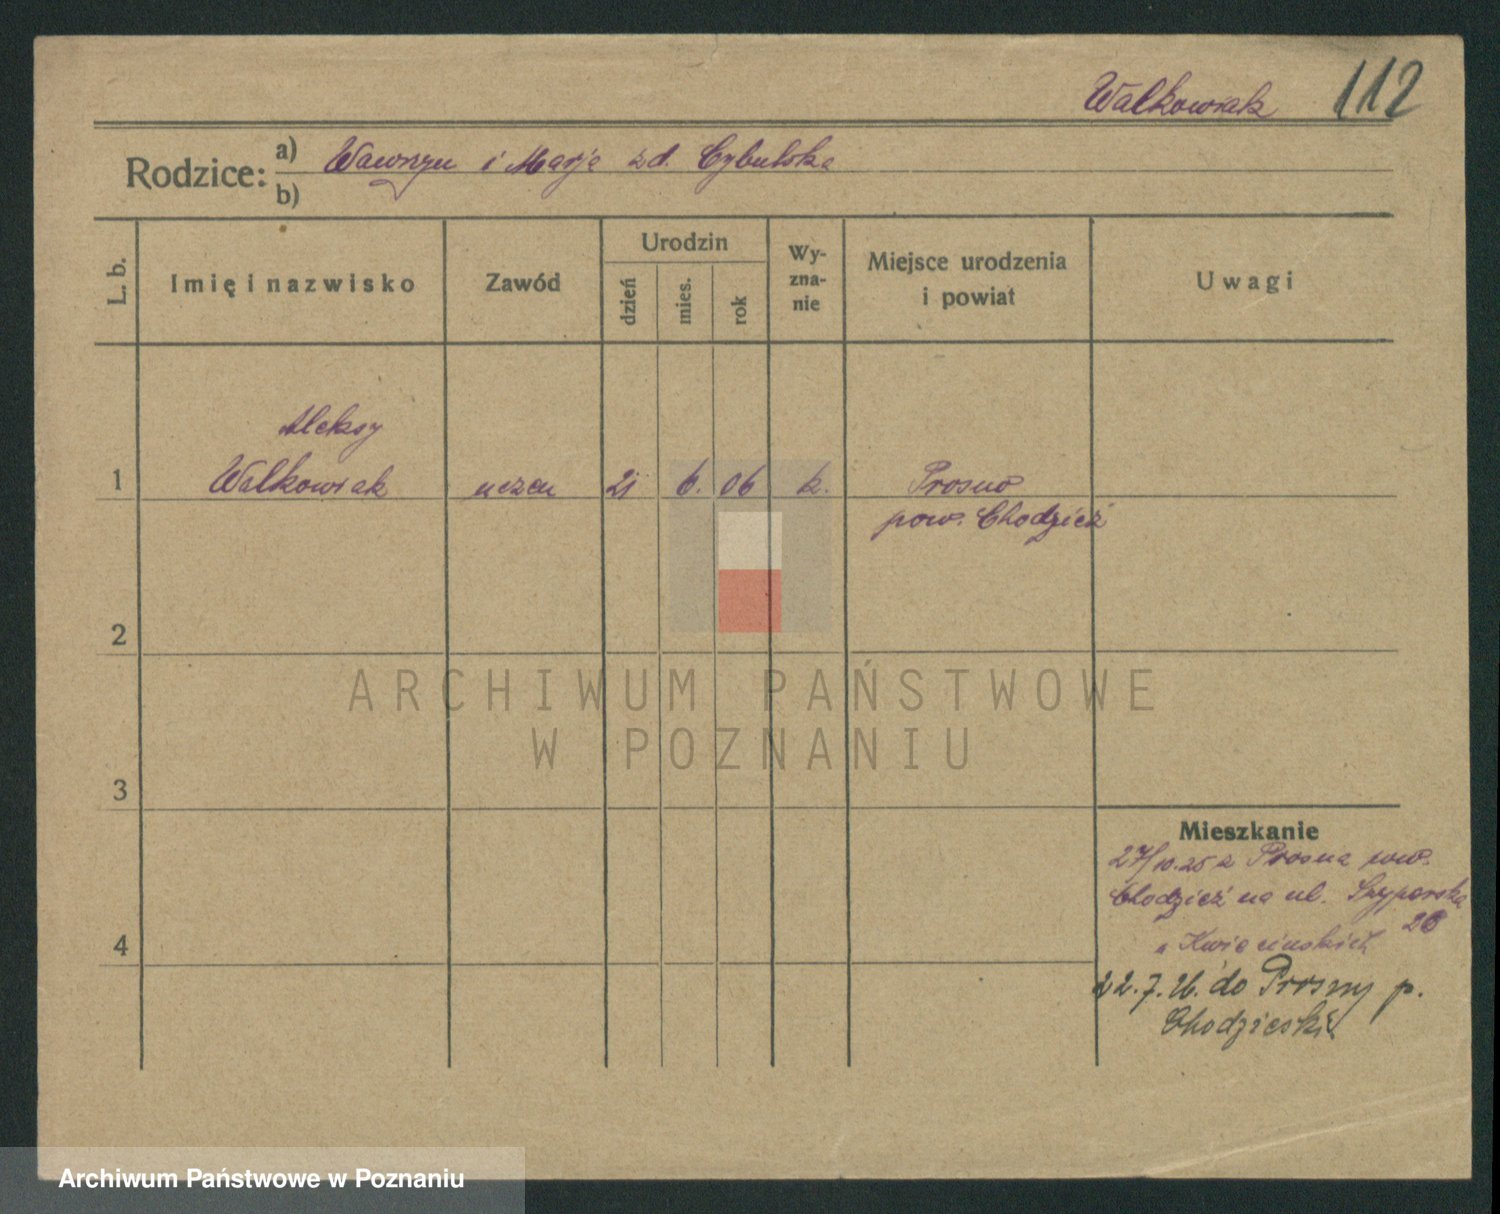 Walkowiak 112
Rodzice: a) Wawrzyn i Marja zd. Cybulska
b)
L. b.
Imię i nazwisko
Zawód
Urodzin
dzień
mies.
rok
Wy-
zna-
nie
Miejsce urodzenia
i powiat
Uwagi
Aleksy
1 Walkowiak uczeń 21 6. 06 k. Prosno
pow. Chodzież
2
ARCHIWUM PAŃSTWOWE
W POZNANIU
3
Mieszkanie
27/10.25 z Prosna pow.
Chodzież na ul. Szyperska
26
u Kwiecińskich
4
22.7.26. do Prosny p.
Chodzieski
Archiwum Państwowe w Poznaniu